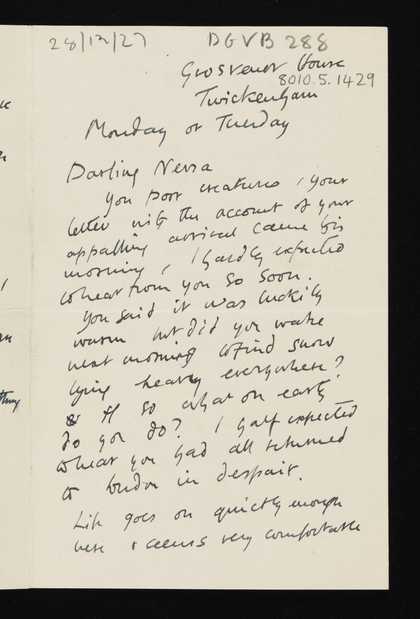 28/12/27 DGVB 288
Grosvenor House
8010.5.1429
Twickenham
Monday or Tuesday
Darling Nessa
You poor creatures, your
letter with the account of your
appalling arrival came this
morning, I hardly expected
to hear from you so soon.
You said it was luckily
warm but did you wake
next morning to find snow
lying heavily everywhere?
& if so what on earth
do you do? I half expected
to hear you had all returned
to London in despair.
Life goes on quietly enough
here & seems very comfortable